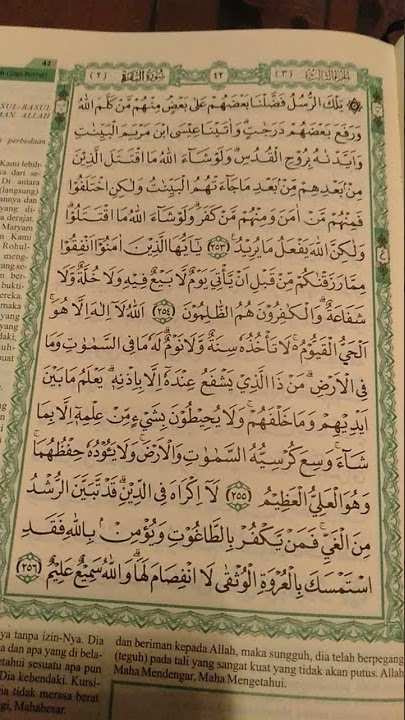 ٤٢
(٢)
سُوْرَةُ الْبَقَرَةِ
٤٢
(٣)
اَلْجُزْءُ الثَّالِثُ
تِلْكَ الرُّسُلُ فَضَّلْنَا بَعْضَهُمْ عَلٰى بَعْضٍ مِنْهُمْ مَّنْ كَلَّمَ اللّٰهُ
وَرَفَعَ بَعْضَهُمْ دَرَجٰتٍ وَاٰتَيْنَا عِيْسَى ابْنَ مَرْيَمَ الْبَيِّنٰتِ
وَاَيَّدْنٰهُ بِرُوْحِ الْقُدُسِ وَلَوْ شَآءَ اللّٰهُ مَا اقْتَتَلَ الَّذِيْنَ
مِنْۢ بَعْدِهِمْ مِّنْۢ بَعْدِ مَا جَآءَتْهُمُ الْبَيِّنٰتُ وَلٰكِنِ اخْتَلَفُوْا
فَمِنْهُمْ مَّنْ اٰمَنَ وَمِنْهُمْ مَّنْ كَفَرَ وَلَوْ شَآءَ اللّٰهُ مَا اقْتَتَلُوْا
وَلٰكِنَّ اللّٰهَ يَفْعَلُ مَا يُرِيْدُ (٢٥٣) يٰٓاَيُّهَا الَّذِيْنَ اٰمَنُوْٓا اَنْفِقُوْا
مِمَّا رَزَقْنٰكُمْ مِّنْ قَبْلِ اَنْ يَّأْتِيَ يَوْمٌ لَّا بَيْعٌ فِيْهِ وَلَا خُلَّةٌ وَّلَا
شَفَاعَةٌ وَالْكٰفِرُوْنَ هُمُ الظّٰلِمُوْنَ (٢٥٤) اَللّٰهُ لَآ اِلٰهَ اِلَّا هُوَ
الْحَيُّ الْقَيُّوْمُ لَا تَأْخُذُهٗ سِنَةٌ وَّلَا نَوْمٌ لَهٗ مَا فِى السَّمٰوٰتِ وَمَا
فِى الْاَرْضِ مَنْ ذَا الَّذِيْ يَشْفَعُ عِنْدَهٗٓ اِلَّا بِاِذْنِهٖ يَعْلَمُ مَا بَيْنَ
اَيْدِيْهِمْ وَمَا خَلْفَهُمْ وَلَا يُحِيْطُوْنَ بِشَيْءٍ مِّنْ عِلْمِهٖٓ اِلَّا بِمَا
شَآءَ وَسِعَ كُرْسِيُّهُ السَّمٰوٰتِ وَالْاَرْضَ وَلَا يَـُٔوْدُهٗ حِفْظُهُمَا
وَهُوَ الْعَلِيُّ الْعَظِيْمُ (٢٥٥) لَآ اِكْرَاهَ فِى الدِّيْنِ قَدْ تَّبَيَّنَ الرُّشْدُ
مِنَ الْغَيِّ فَمَنْ يَّكْفُرْ بِالطَّاغُوْتِ وَيُؤْمِنْۢ بِاللّٰهِ فَقَدِ
اسْتَمْسَكَ بِالْعُرْوَةِ الْوُثْقٰى لَا انْفِصَامَ لَهَا وَاللّٰهُ سَمِيْعٌ عَلِيْمٌ (٢٥٦)
ya tanpa izin-Nya. Dia
a dan apa yang di bela-
etahui sesuatu apa pun
Dia kehendaki. Kursi-
ia tidak merasa berat
gi, Mahabesar.
dan beriman kepada Allah, maka sungguh, dia telah berpegang
(teguh) pada tali yang sangat kuat yang tidak akan putus. Allah
Maha Mendengar, Maha Mengetahui.